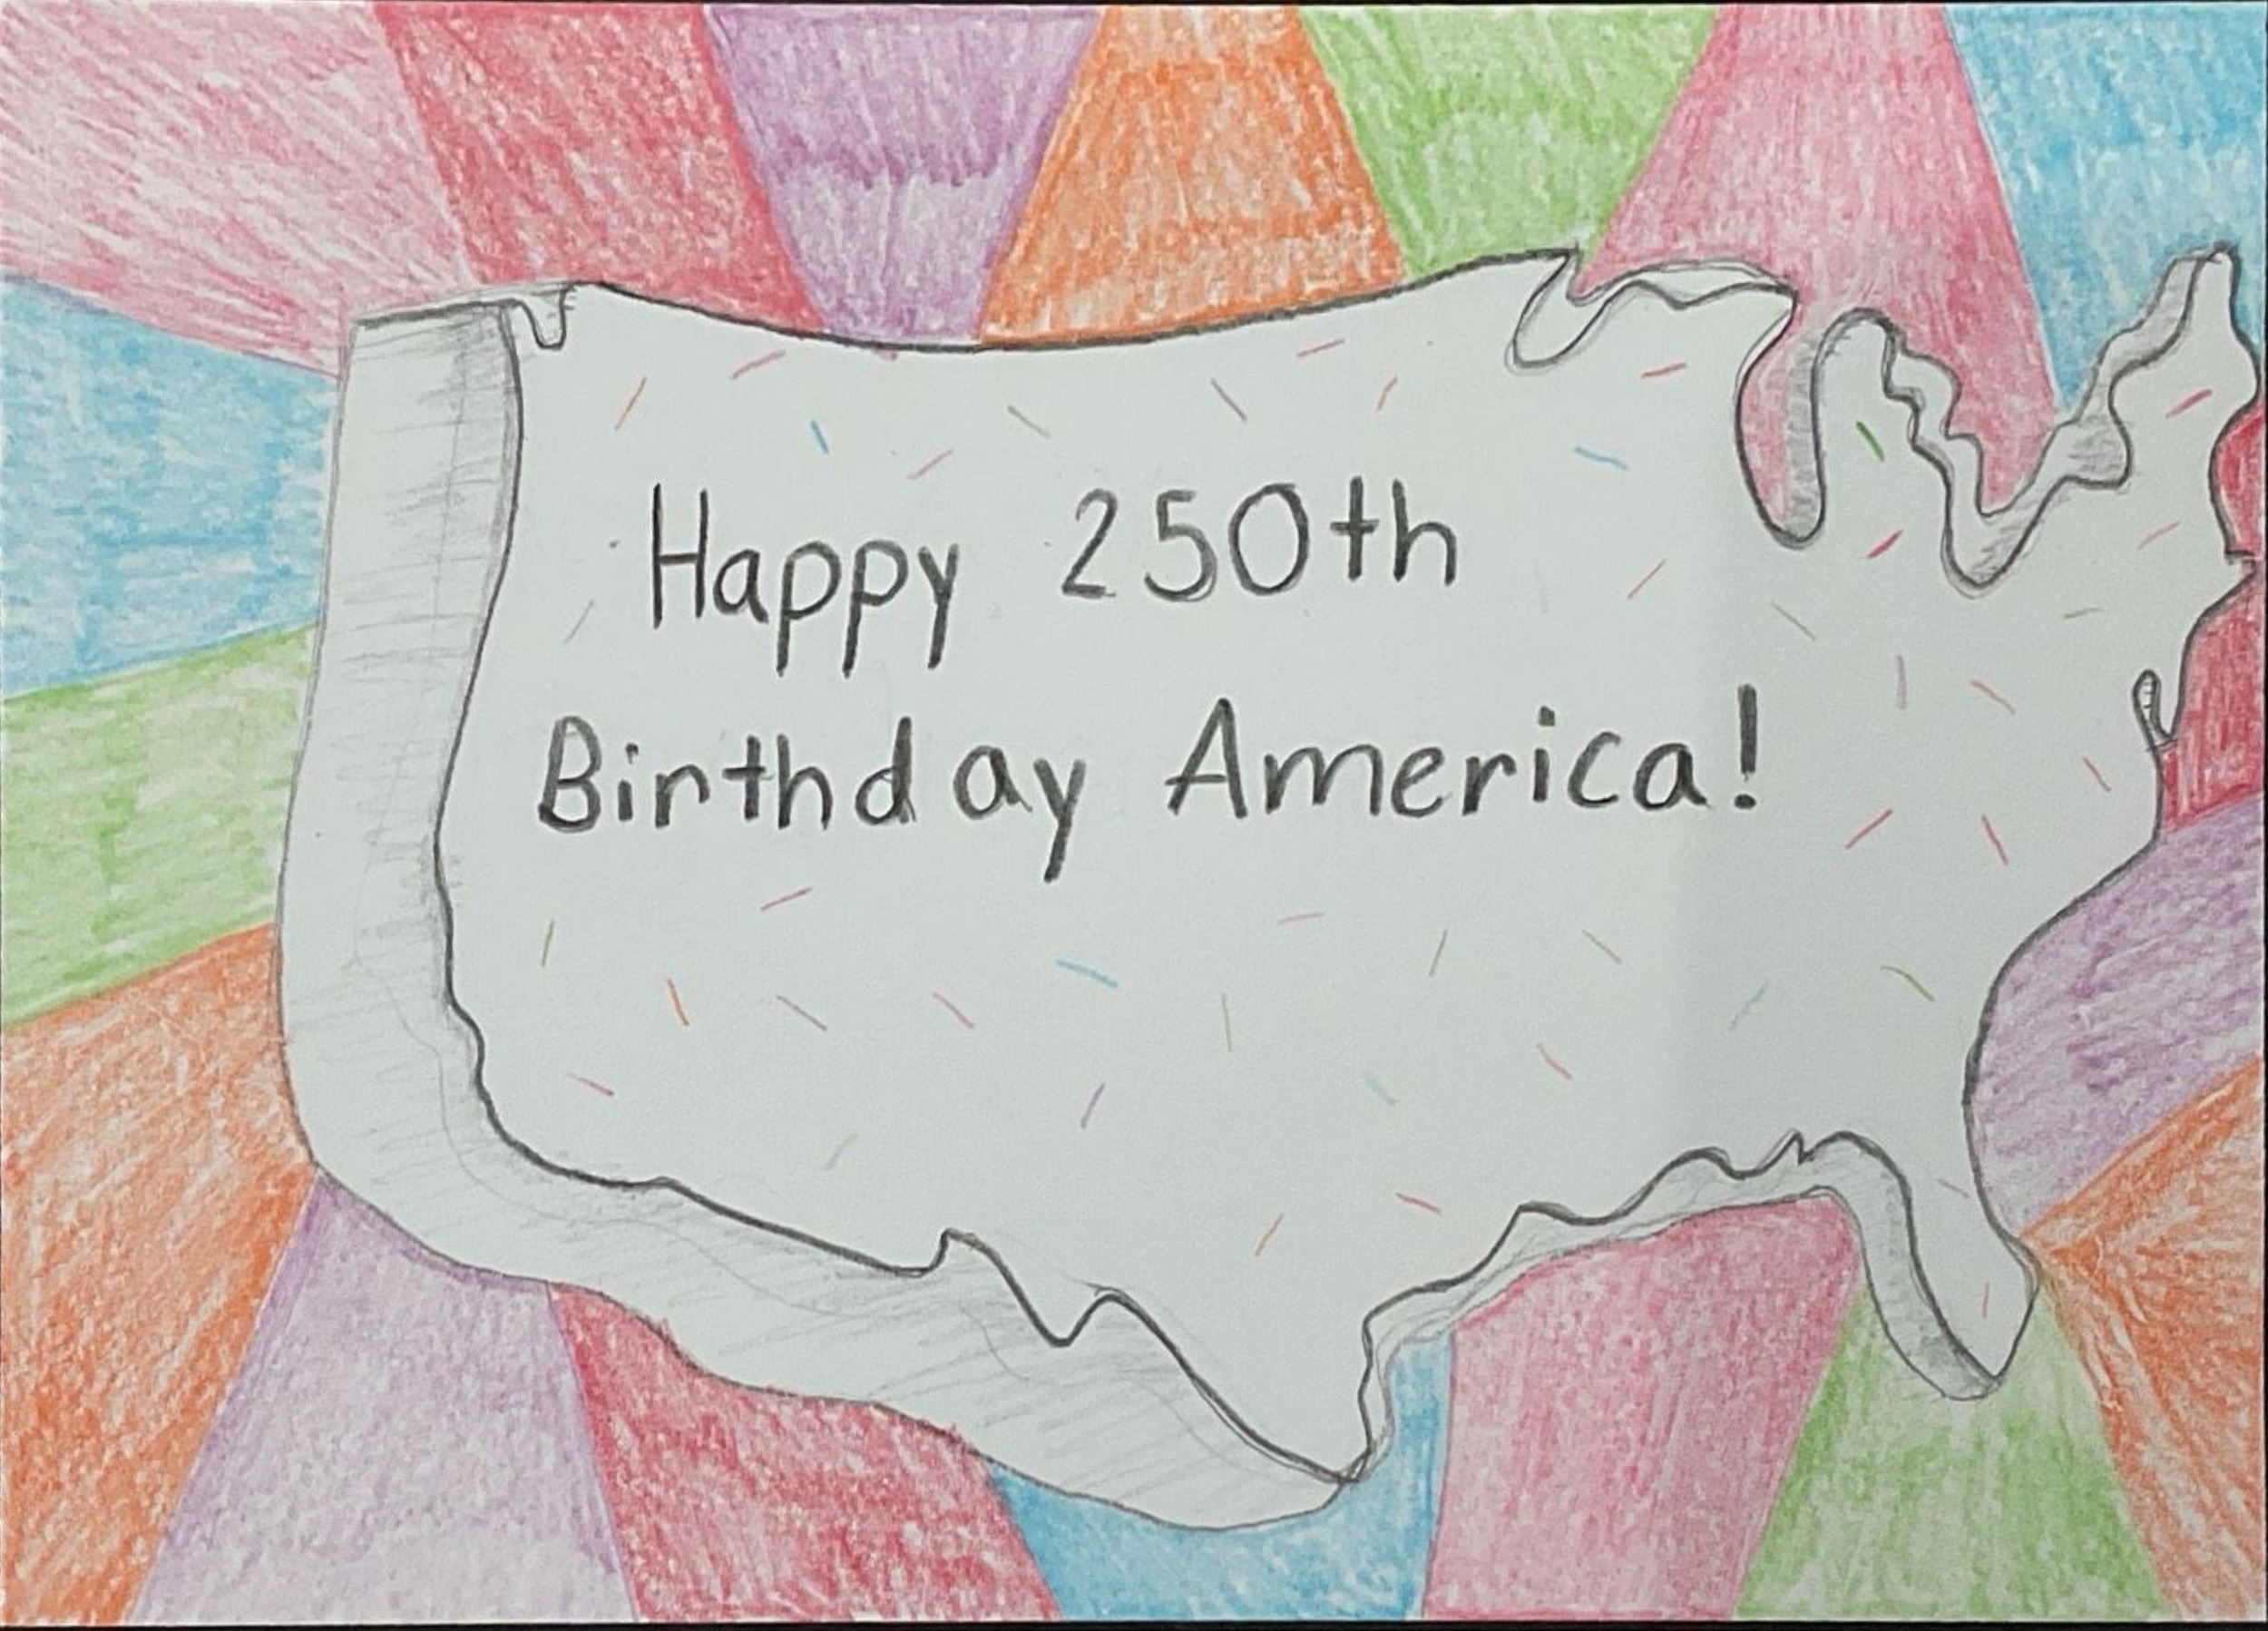 Happy 250th
Birthday America!